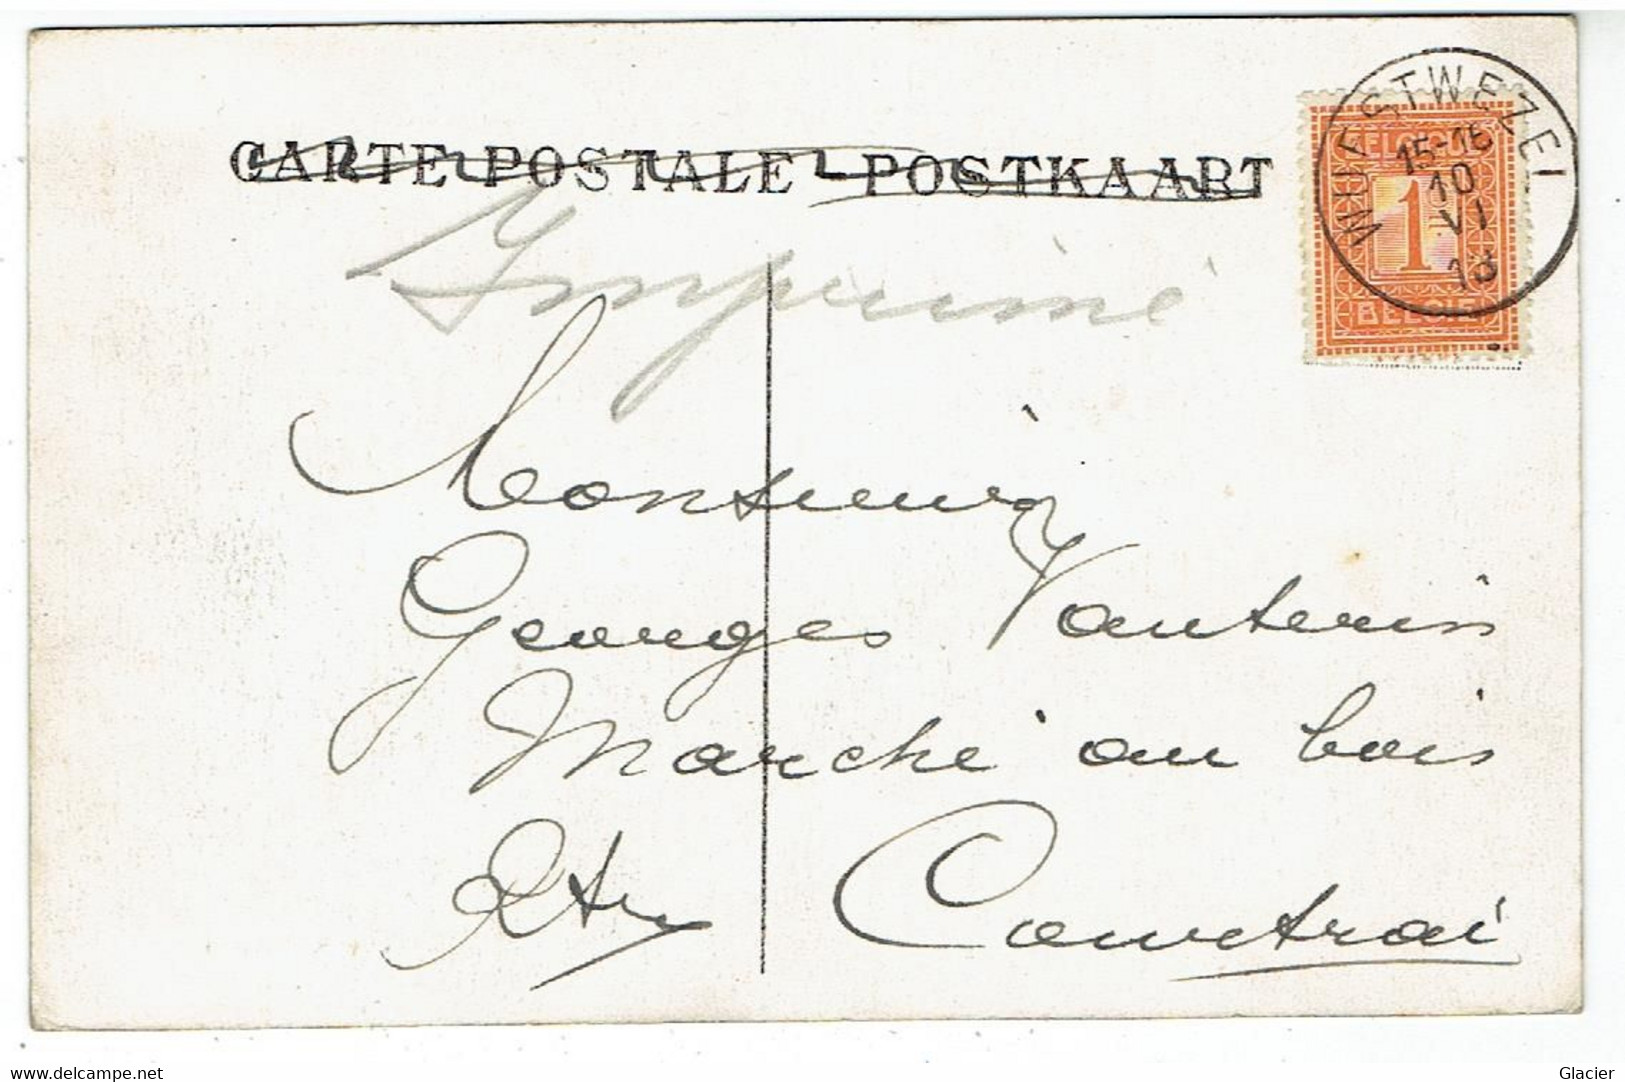 CARTE POSTALE POSTKAART
WUESTWEZEL
15-16
10
VI
13
BELGIQUE
1
BELGIË
Imprimé
Monsieur
Georges
Marché au bois
Courtrai
www.delcampe.net
Glacier